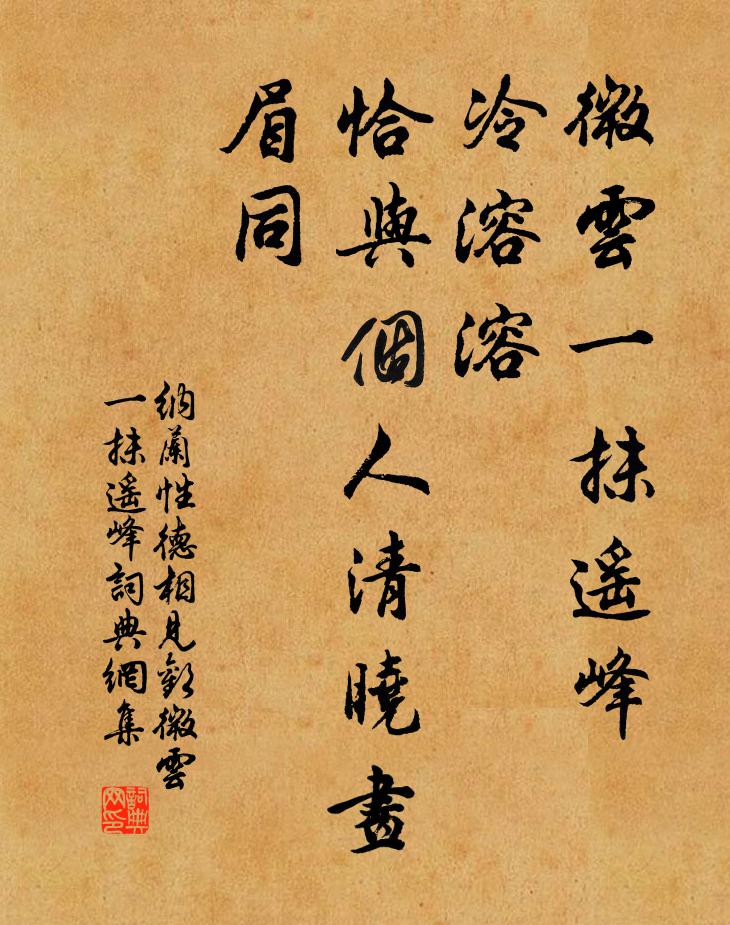 微雲一抹遥峰
冷溶溶
恰與個人清曉畫
眉同
納蘭性德相見歡微雲
一抹遥峰詞典網集
詞典
网印